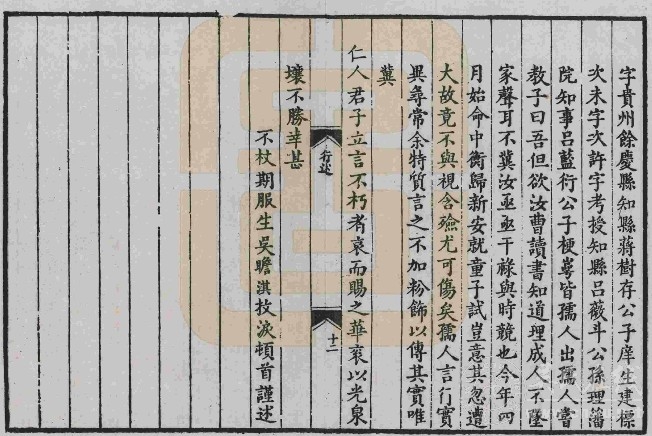 字貴州餘慶縣知縣蔣樹存公子庠生建標
次未字次許字考授知縣呂薇斗公孫理藩
院知事呂藍衍公子梗嵜皆孺人出孺人嘗
教子曰吾但欲汝曹讀書知道理成人不墜
家聲耳不冀汝亟亟干祿與時競也今年四
月始命中衡歸新安就童子試豈意其忽遭
大故竟不與視含殮尤可傷矣孺人言行實
異尋常余特質言之不加粉飾以傳其實唯
冀
仁人君子立言不朽者哀而賜之華衮以光泉
行述
十二
壤不勝幸甚
不杖期服生吳瞻淇抆淚頓首謹述